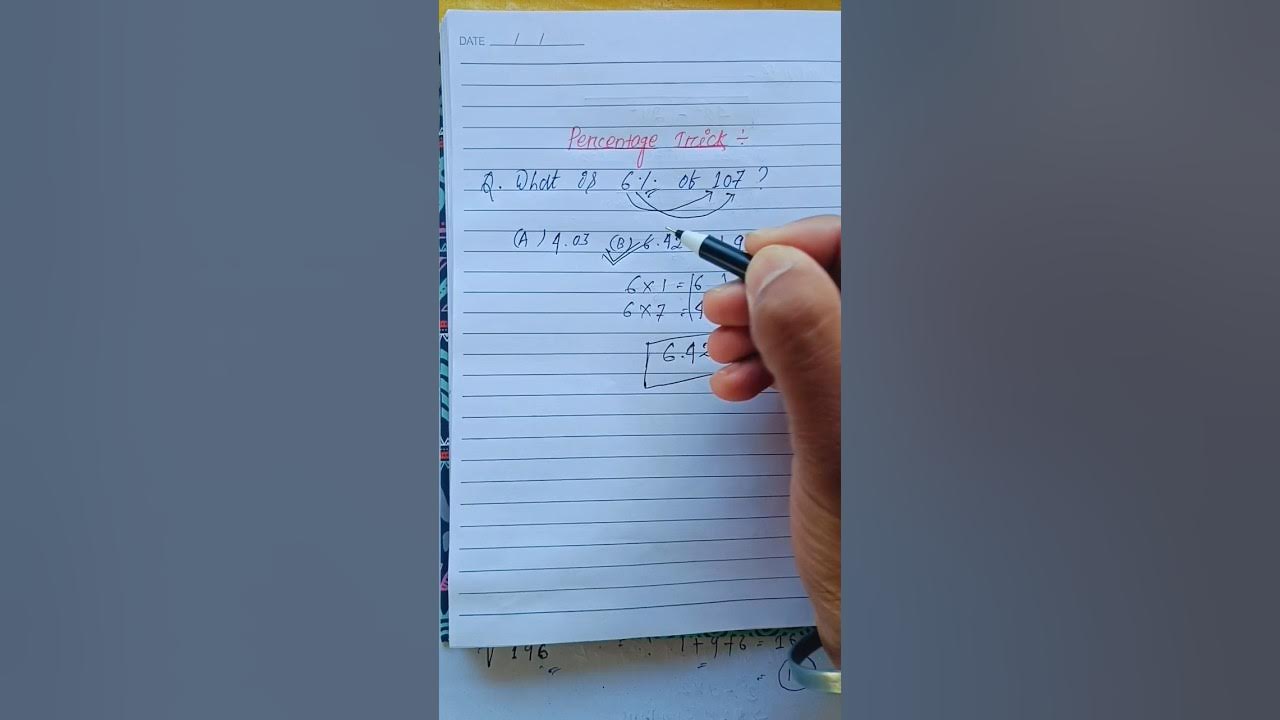 DATE / /
Percentage Trick ÷
Q. What is 6% of 107 ?
(A) 4.03 (B) 6.42
6 × 1 = 6
6 × 7 = 4
6.42
√ 196 1+9+6 = 16